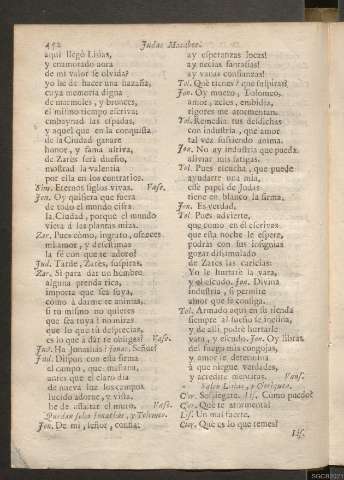 452
Judas Macabeo.
aqui llegò Lisias,
y enamorado aora
de mi valor se olvida?
yo he de hacer una hazaña,
cuya memoria digna
de marmoles, y bronces,
el mismo tiempo escriva:
embaynad las espadas,
y aquel que en la conquista
de la Ciudad ganare
honor, y fama altiva,
de Zarès serà dueño,
mostrad la valentia
por ella en los contrarios.
Sim. Eternos siglos vivas. Vase.
Jon. Oy quisiera que fuera
de todo el mundo cifra
la Ciudad, porque el mundo
viera à las plantas mias.
Zar. Pues còmo, ingrato, ofendes
mi amor, y desestimas
la fè con que te adoro?
Jud. Tarde, Zarès, suspiras.
Zar. Si para dar un hombre
alguna prenda rica,
importa que sea suya,
còmo à darme te animas,
si tu mismo no quieres
que sea tuya? no miras
que lo que tù desprecias,
es lo que à dàr te obligas? Vase.
Jud. Ha Jonatàs! Jonat. Señor?
Jud. Dispon con esta firma
el campo, que mañana,
antes que el claro dia
de nueva luz los campos
lucido adorne, y vista,
he de assaltar el muro. Vase.
Quedan solos Jonathàs, y Tolomeo.
Jon. De mi, señor, confia:
ay esperanzas locas!
ay necias fantasias!
ay vanas confianzas!
Tol. Què tienes? què suspiras?
Jon. Oy muero, Tolomeo,
amor, zelos, embidia,
rigores me atormentan.
Tol. Remedia tus desdichas
con industria, que amor
tal vez sufriendo anima.
Jon. No ay industria que pueda
aliviar mis fatigas.
Tol. Pues escucha, que puede
ayudarte una mia,
esse papel de Judas
tiene en blanco la firma.
Jon. Es verdad.
Tol. Pues advierte,
que como en èl escrivas
que esta noche le espera,
podràs con sus insignias
gozar dissimulado
de Zarès las caricias:
Yo le hurtarè la vara,
y el escudo. Jon. Divina
industria, si permite
amor que se consiga.
Tol. Armado aqui en su tienda
siempre al sueño se inclina,
y de alli, podrè hurtarle
vara, y escudo. Jon. Oy libras
del fuego mis congojas,
y amor te determina
à que niegue verdades,
y acredite mentiras. Vanse.
Salen Lisias, y Chriqueta.
Cor. Sossiegate. Lis. Còmo puedo?
Cor. Què te atormenta?
Lis. Un mal fuerte.
Cor. Què es lo que temes?
Lis.
SGCB2021